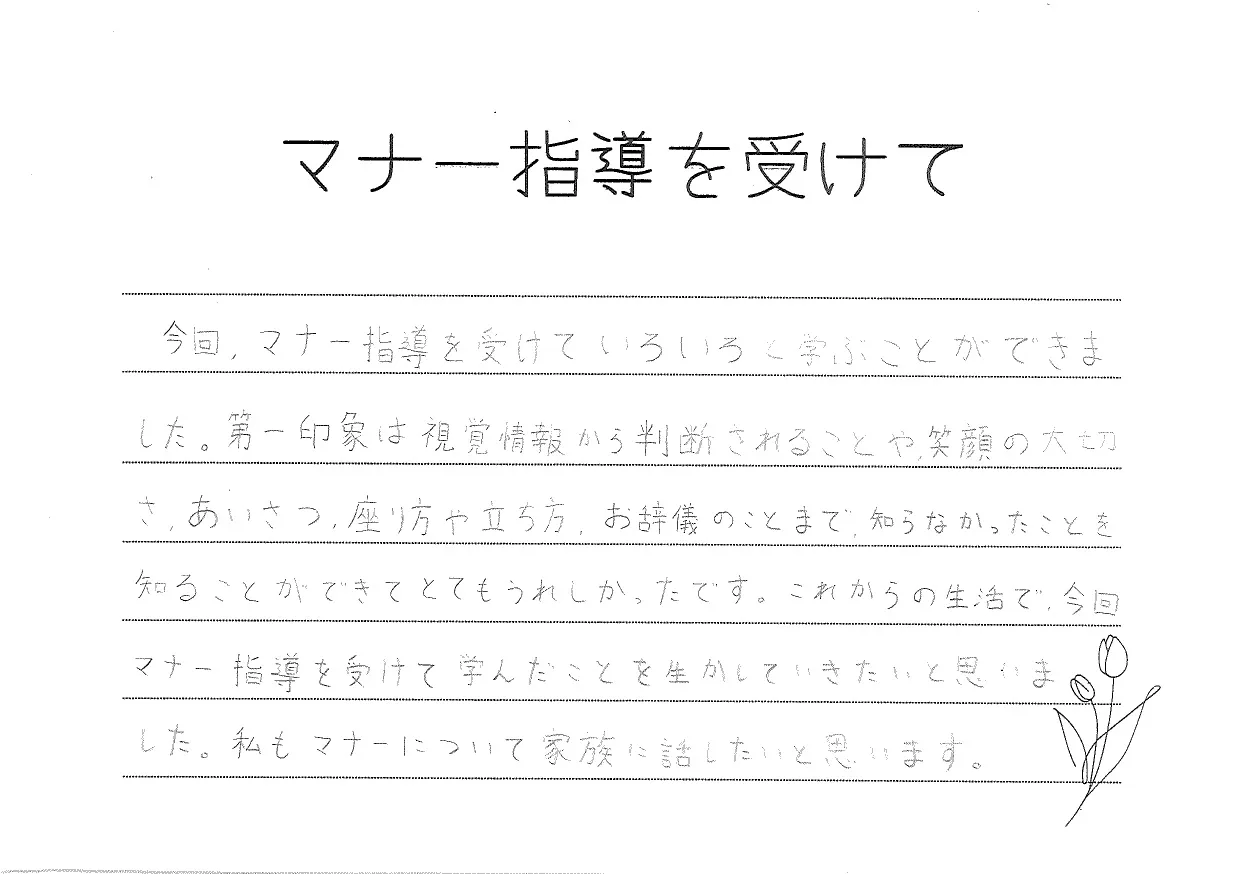 マナー指導を受けて
今回,マナー指導を受けていろいろと学ぶことができま
した。第一印象は視覚情報から判断されることや,笑顔の大切
さ,あいさつ,座り方や立ち方,お辞儀のことまで,知らなかったことを
知ることができてとてもうれしかったです。これからの生活で,今回
マナー指導を受けて学んだことを生かしていきたいと思いま
した。私もマナーについて家族に話したいと思います。